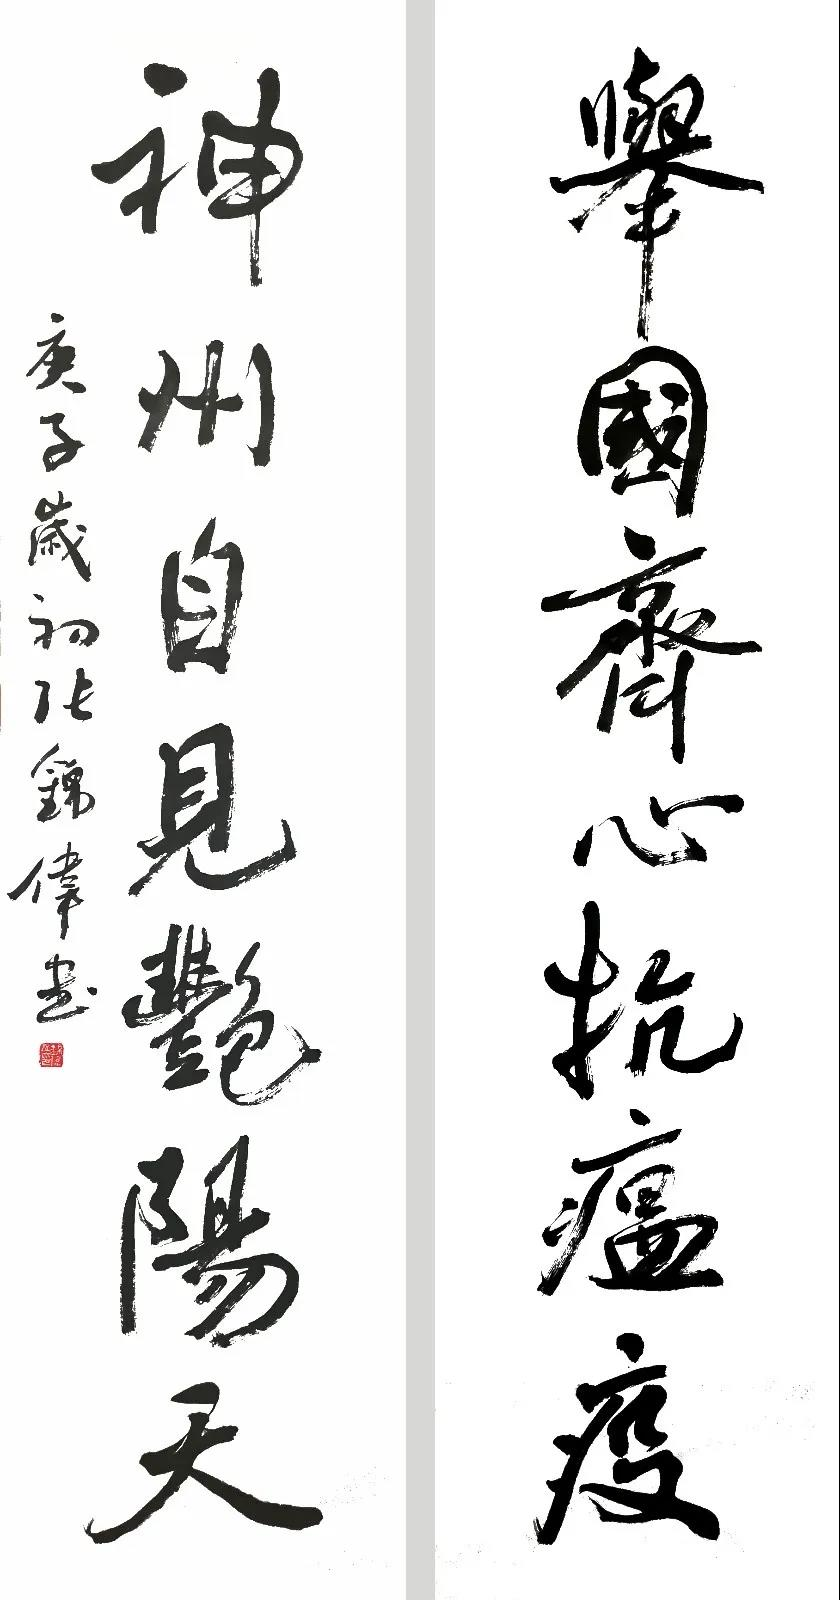 舉國齊心抗瘟疫
神州自見艷陽天
庚子歲初张錦偉书